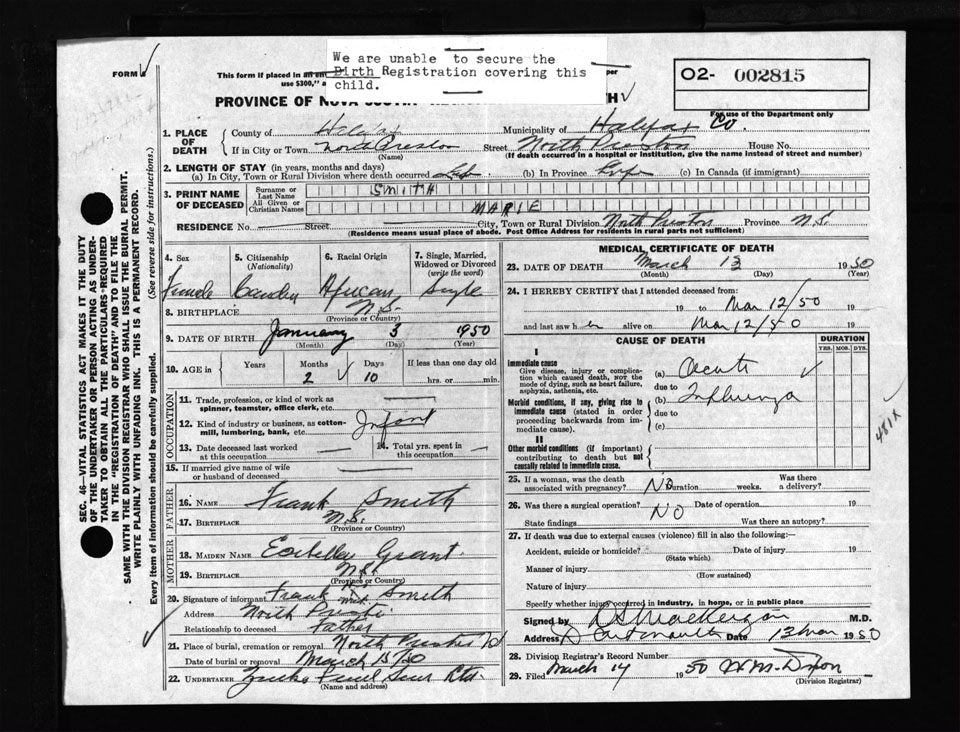 We are unable to secure the
Birth Registration covering this
child.
FORM
This form if placed in an en
per
use $300," a
PROVINCE OF NOVA SCOTIA
TH
O2- 002815
For use of the Department only
1. PLACE OF DEATH
County of Halifax Municipality of Halifax Co.
If in City or Town North Preston Street North Preston House No.
(Name) (If death occurred in a hospital or institution, give the name instead of street and number)
2. LENGTH OF STAY (in years, months and days)
(a) In City, Town or Rural Division where death occurred Life (b) In Province Life (c) In Canada (if immigrant)
3. PRINT NAME OF DECEASED
Surname or Last Name SMITH
All Given or Christian Names MARIE
RESIDENCE No. Street City, Town or Rural Division North Preston Province N.S.
(Residence means usual place of abode. Post Office Address for residents in rural parts not sufficient)
4. Sex 5. Citizenship (Nationality) 6. Racial Origin 7. Single, Married, Widowed or Divorced (write the word)
Female African Single
8. BIRTHPLACE N.S.
(Province or Country)
9. DATE OF BIRTH January 3 1950
(Month) (Day) (Year)
10. AGE in Years Months Days If less than one day old
2 10 hrs. or min.
OCCUPATION
11. Trade, profession, or kind of work as spinner, teamster, office clerk, etc.
12. Kind of industry or business, as cotton-mill, lumbering, bank, etc. Infant
13. Date deceased last worked at this occupation 14. Total yrs. spent in this occupation
15. If married give name of wife or husband of deceased
FATHER
16. NAME Frank Smith
17. BIRTHPLACE N.S.
(Province or Country)
MOTHER
18. MAIDEN NAME Grant
19. BIRTHPLACE N.S.
(Province or Country)
20. Signature of informant Frank Smith
Address North Preston
Relationship to deceased Father
21. Place of burial, cremation or removal North Preston
Date of burial or removal March 15/50
22. UNDERTAKER Ltd.
(Name and address)
MEDICAL CERTIFICATE OF DEATH
23. DATE OF DEATH March 13 1950
(Month) (Day) (Year)
24. I HEREBY CERTIFY that I attended deceased from:
19 to Mar 12/50 19
and last saw her alive on Mar 12/50 19
CAUSE OF DEATH DURATION
YRS. MOS. DYS.
I
Immediate cause
Give disease, injury or complication which caused death, not the mode of dying, such as heart failure, asphyxia, asthenia, etc.
(a) Acute
due to
Morbid conditions, if any, giving rise to immediate cause (stated in order proceeding backwards from immediate cause).
(b) Influenza
due to
(c)
481X
II
Other morbid conditions (if important) contributing to death but not causally related to immediate cause.
25. If a woman, was the death associated with pregnancy? No Duration weeks. Was there a delivery?
26. Was there a surgical operation? NO Date of operation 19
State findings Was there an autopsy?
27. If death was due to external causes (violence) fill in also the following:—
Accident, suicide or homicide? Date of injury 19
(State which)
Manner of injury
(How sustained)
Nature of injury
Specify whether injury occurred in industry, in home, or in public place
Signed by M.D.
Address Dartmouth Date 13 Mar 1950
28. Division Registrar's Record Number
29. Filed March 14 1950 Wm. Dixon
(Division Registrar)
SEC. 46—VITAL STATISTICS ACT MAKES IT THE DUTY
OF THE UNDERTAKER OR PERSON ACTING AS UNDER-
TAKER TO OBTAIN ALL THE PARTICULARS REQUIRED
IN THE "REGISTRATION OF DEATH" AND TO FILE THE
SAME WITH THE DIVISION REGISTRAR WHO SHALL ISSUE THE BURIAL PERMIT.
WRITE PLAINLY WITH UNFADING INK. THIS IS A PERMANENT RECORD.
Every item of information should be carefully supplied. (See reverse side for instructions.)